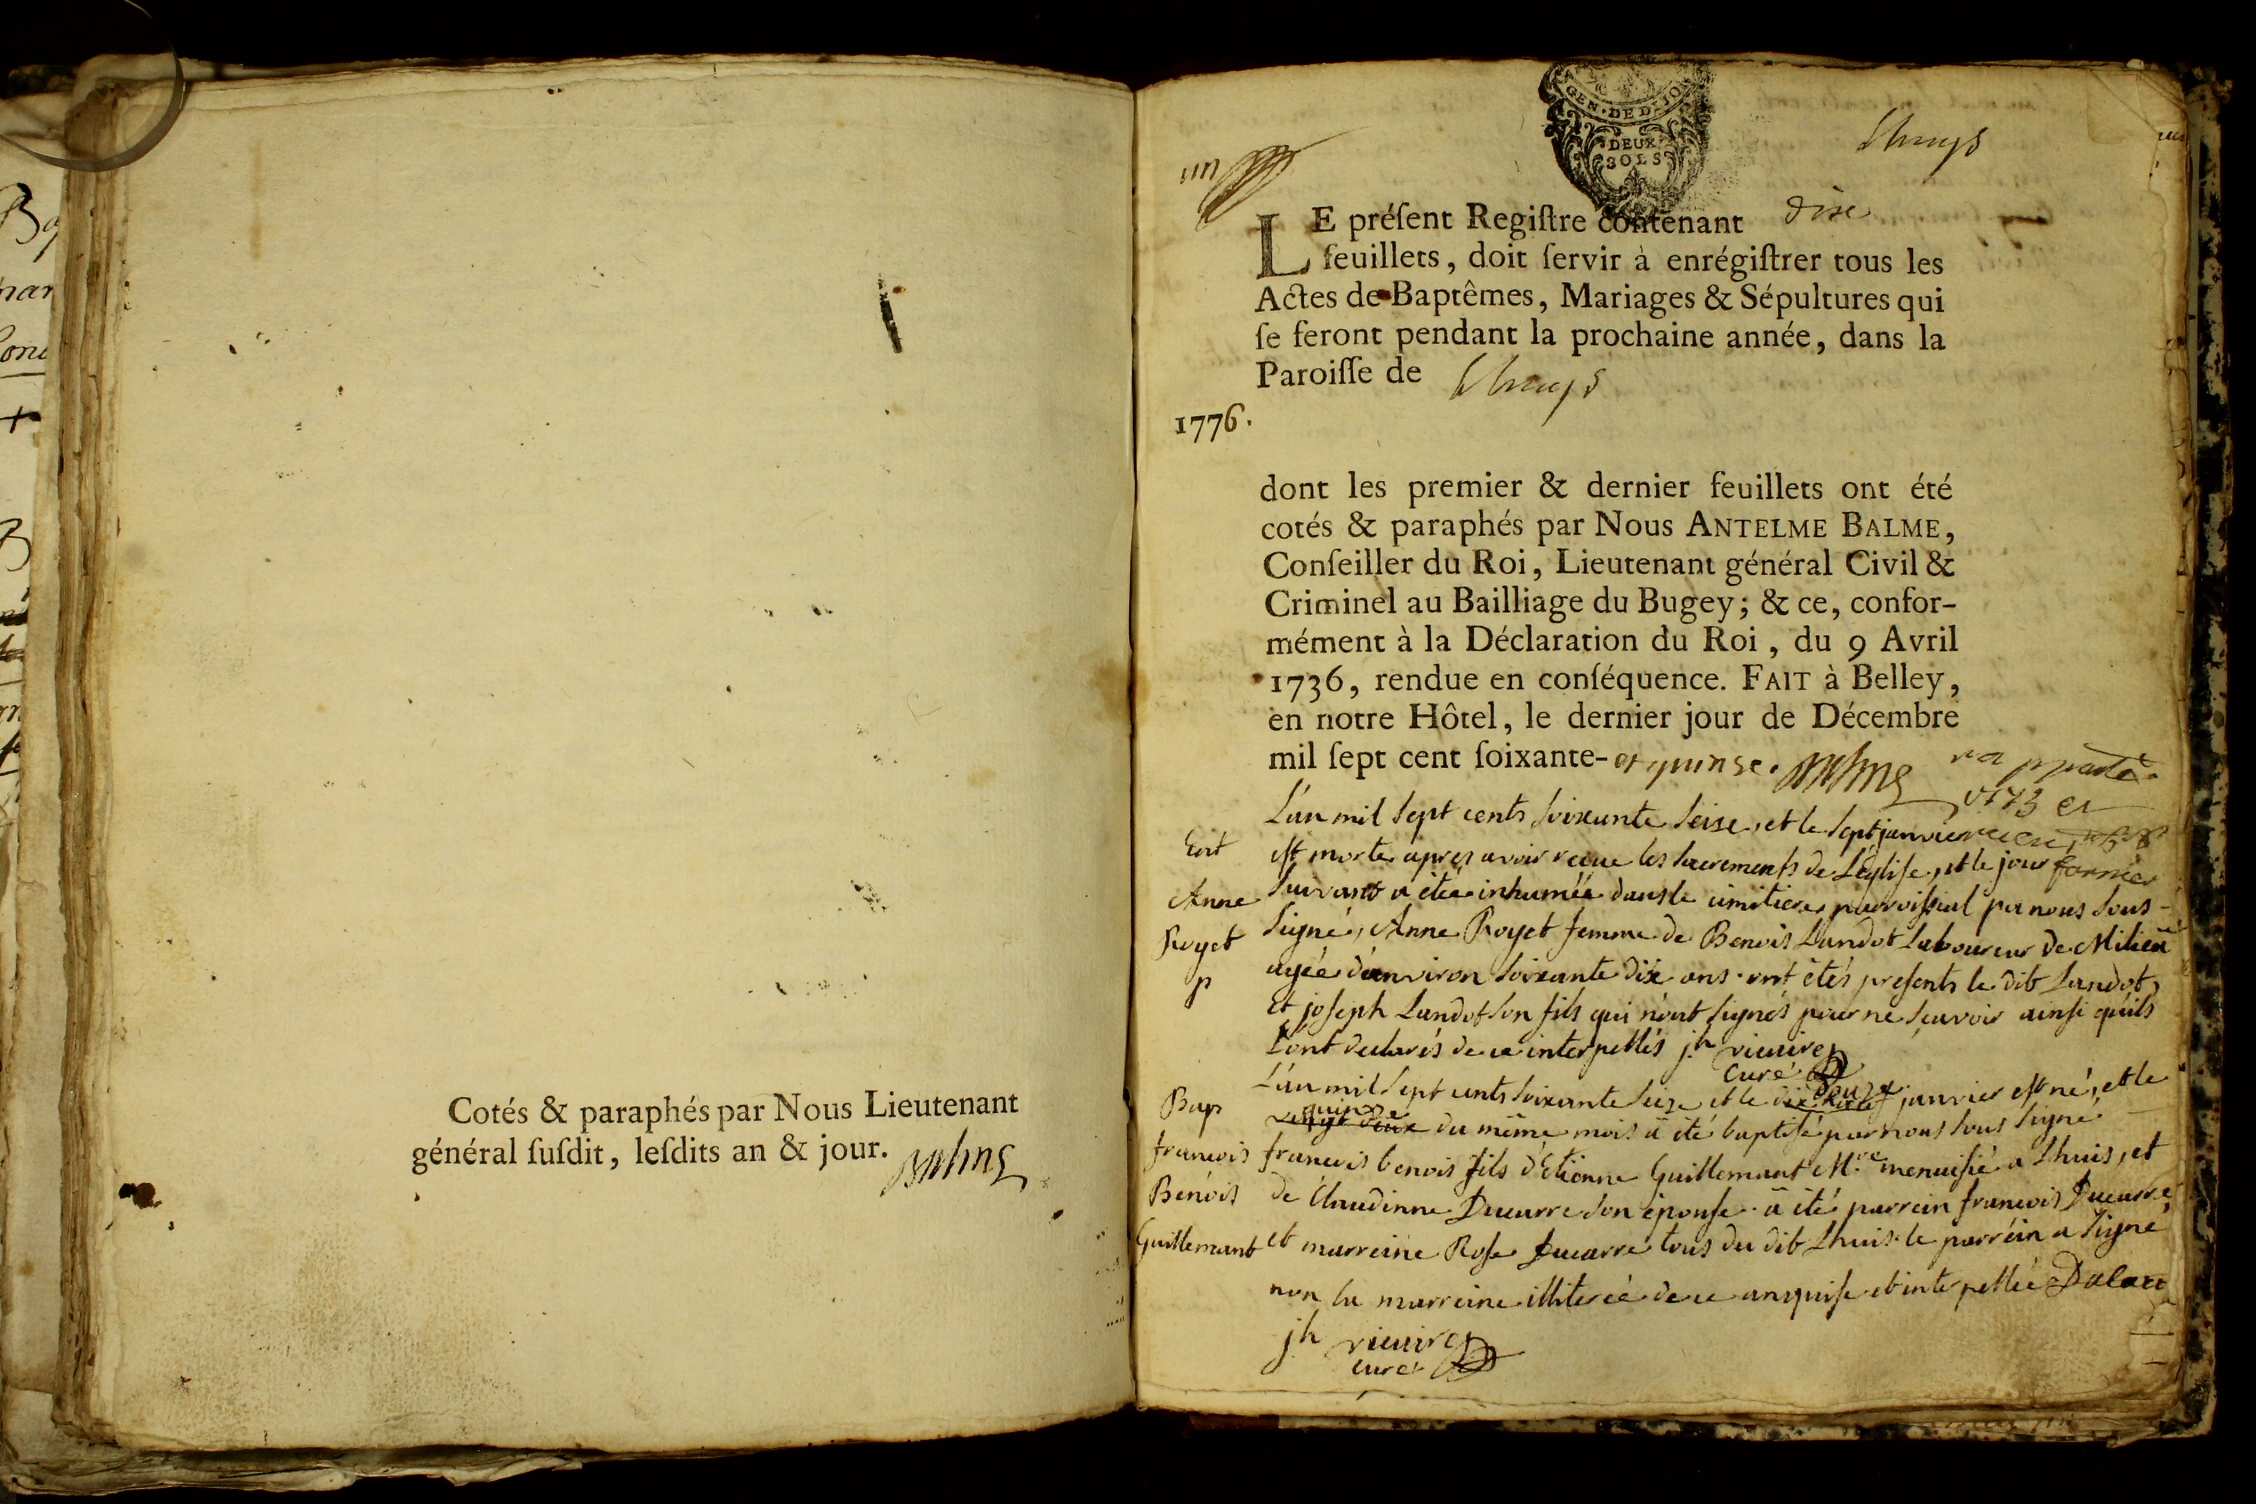 Cotés & paraphés par Nous Lieutenant
général ſuſdit, leſdits an & jour. Balme
un
GEN · DE DIJO
DEUX
SOLS
Lhuys
LE préſent Regiſtre contenant dix
feuillets, doit ſervir à enrégiſtrer tous les
Actes de Baptêmes, Mariages & Sépultures qui
ſe feront pendant la prochaine année, dans la
Paroiſſe de Lhuys
1776.
dont les premier & dernier feuillets ont été
cotés & paraphés par Nous ANTELME BALME,
Conſeiller du Roi, Lieutenant général Civil &
Criminel au Bailliage du Bugey; & ce, confor-
mément à la Déclaration du Roi, du 9 Avril
1736, rendue en conſéquence. FAIT à Belley,
en notre Hôtel, le dernier jour de Décembre
mil ſept cent ſoixante- et quinze. Balme
L'an mil sept cents soixante seise, et le sept janvier
est morte apres avoir reçue les sacrements de L'Eglise, et le jour
suivant a étée inhumée dans le cimitiere paroissial par nous sous-
signé, Anne Royet femme de Benois Landot Laboureur de Milieu
agée d'environ soixante dix ans. ont étés presents le dit Landot,
et joseph Landot son fils qui n'ont signés pour ne sçavoir ainsi qu'ils
l'ont declarés de ce interpellés jh
curé
Ent
Anne
Royet
p
L'an mil sept cents soixante seize et le douze janvier est né, et le
quinze du même mois a été baptisé par nous sous signé
francois benois fils d'Etienne Guillemant Mre menuisié a Lhuis, et
de Claudinne Ducarre son épouse. a été parrein francois Ducarre
et marreine Rose Ducarre tous du dit Lhuis. le parrein a signé
non la marreine illiterée de ce enquise et interpellée
jh
curé
Bap
francois
Benois
Guillemant